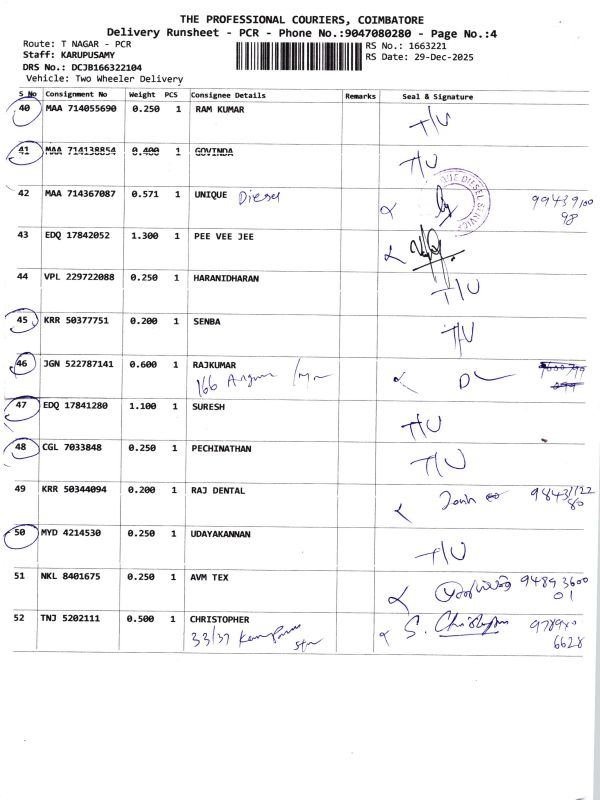 THE PROFESSIONAL COURIERS, COIMBATORE
Delivery Runsheet - PCR - Phone No.:9047080280 - Page No.:4
Route: T NAGAR - PCR
Staff: KARUPUSAMY
DRS No.: DCJB166322104
Vehicle: Two Wheeler Delivery
RS No.: 1663221
RS Date: 29-Dec-2025
S No Consignment No Weight PCS Consignee Details Remarks Seal & Signature
40 MAA 714055690 0.250 1 RAM KUMAR T/U
41 MAA 714138854 0.400 1 GOVINDA T/U
42 MAA 714367087 0.571 1 UNIQUE Diesel 99439100
98
43 EDQ 17842052 1.300 1 PEE VEE JEE
44 VPL 229722088 0.250 1 HARANIDHARAN T/U
45 KRR 50377751 0.200 1 SENBA T/U
46 JGN 522787141 0.600 1 RAJKUMAR
166
47 EDQ 17841280 1.100 1 SURESH T/U
48 CGL 7033848 0.250 1 PECHINATHAN T/U
49 KRR 50344094 0.200 1 RAJ DENTAL 98431122
80
50 MYD 4214530 0.250 1 UDAYAKANNAN T/U
51 NKL 8401675 0.250 1 AVM TEX 94893600
01
52 TNJ 5202111 0.500 1 CHRISTOPHER S. Christopher 978940
6628
33/37